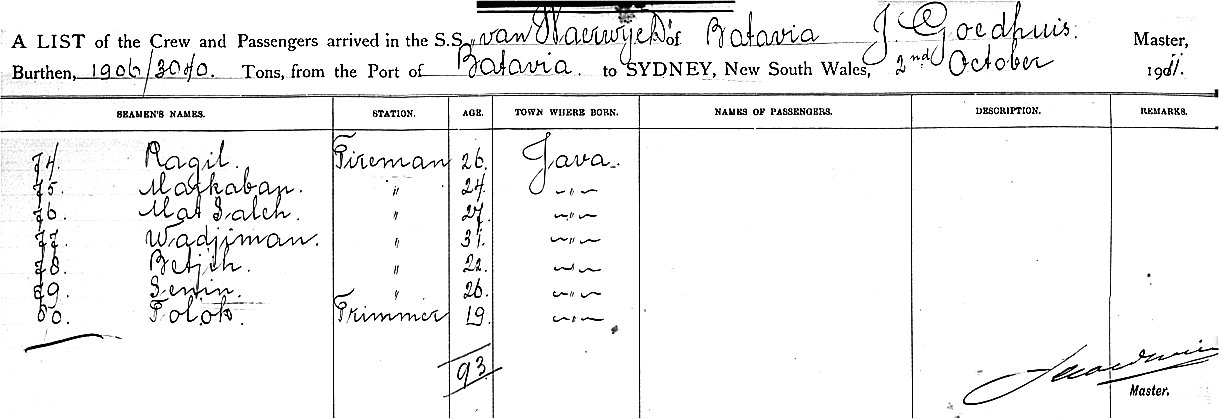 A LIST of the Crew and Passengers arrived in the S.S. "van Waerwijck" of Batavia J. Goedhuis. Master,
Burthen, 1906/3040. Tons, from the Port of Batavia. to SYDNEY, New South Wales, 2nd October 1911.
SEAMEN'S NAMES. STATION. AGE. TOWN WHERE BORN. NAMES OF PASSENGERS. DESCRIPTION. REMARKS.
74. Ragil. Fireman 26. Java.
75. Markaban. " 24. — " —
76. Mat Saleh. " 27. — " —
77. Wadjiman. " 31. — " —
78. Betjih. " 22. — " —
79. Senin. " 26. — " —
80. Polok. Trimmer 19. — " —
93
Master.